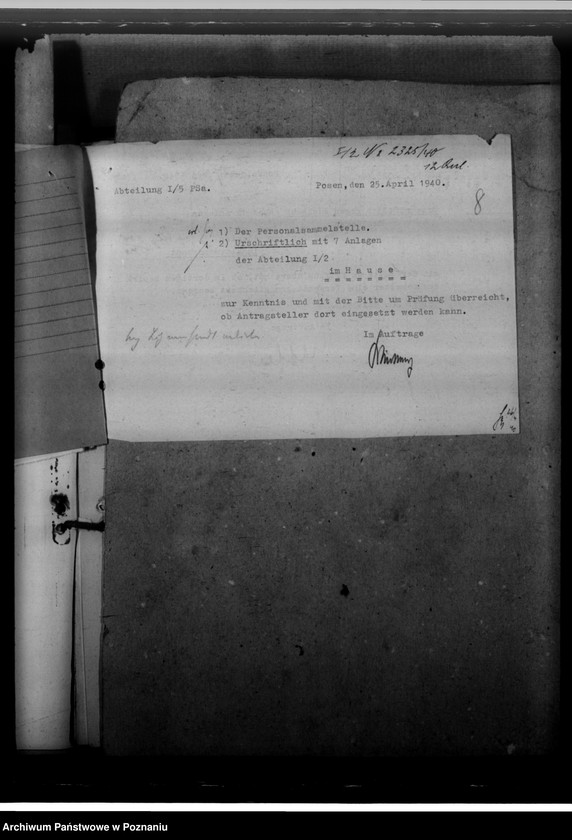 I/2 No 2325/40
Abteilung I/5 PSa.
Posen, den 25.April 1940.
8
1) Der Personalsammelstelle.
2) Urschriftlich mit 7 Anlagen
der Abteilung I/2
im H a u s e
= = = = = = = =
zur Kenntnis und mit der Bitte um Prüfung überreicht,
ob Antragsteller dort eingesetzt werden kann.
Im Auftrage
Archiwum Państwowe w Poznaniu